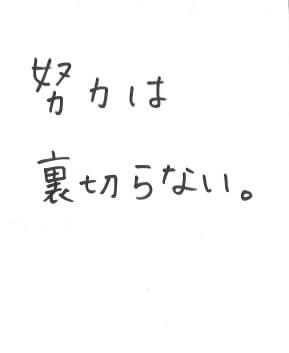 努力は
裏切らない。